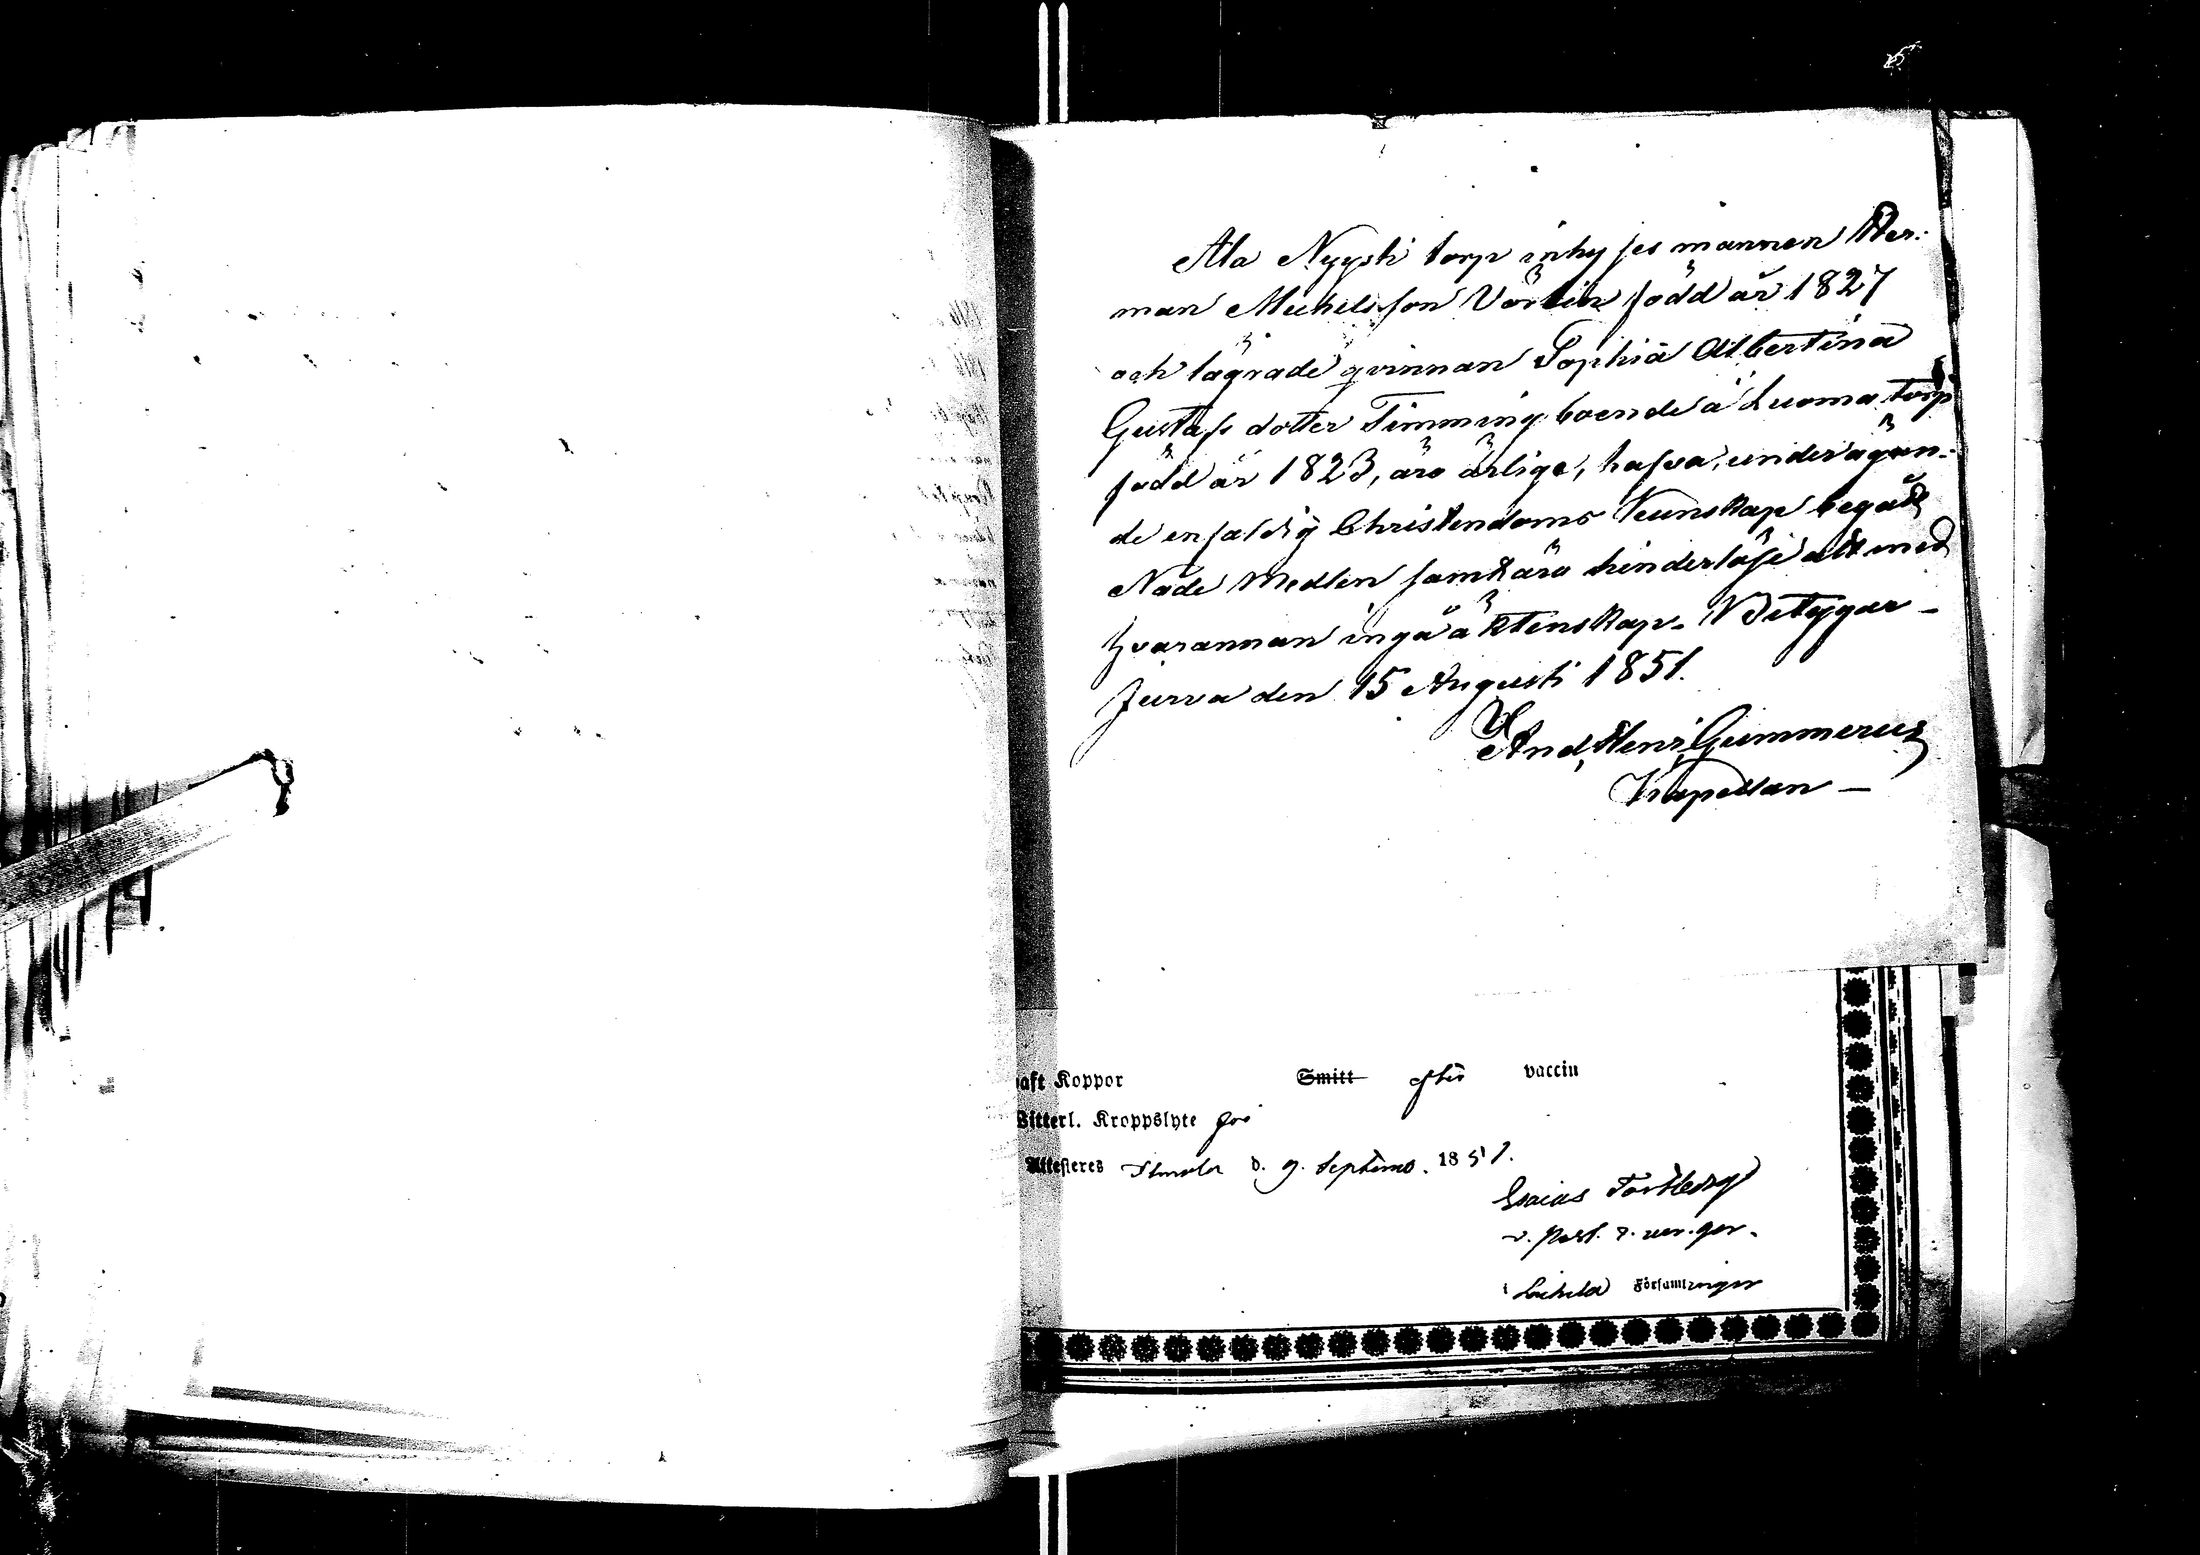 Ala Nyysti torp inhyses mannen Her-
man Michelsson Vörlin född år 1827
och lägrade qvinnan Sophia Albertina
Gustafs dotter Timming boende å Luoma torp
född år 1823, äro ärlige, hafva, under ägan-
de enfaldig Christendoms kunskap begått
Nåde Medlen samt äro hinderlöse att med
hvarannan ingå äktenskap. Betygar _
Jurva den 15 Augusti 1851.
And, Henr, Gummerus
Kapellan _
haft Koppor Smitt efter vaccin
Witterl. Kroppslyte fri
Attesteres Ilmola d. 9. Septemb. 1851.
Esaias
v. Past.
i Laihela Församlingar